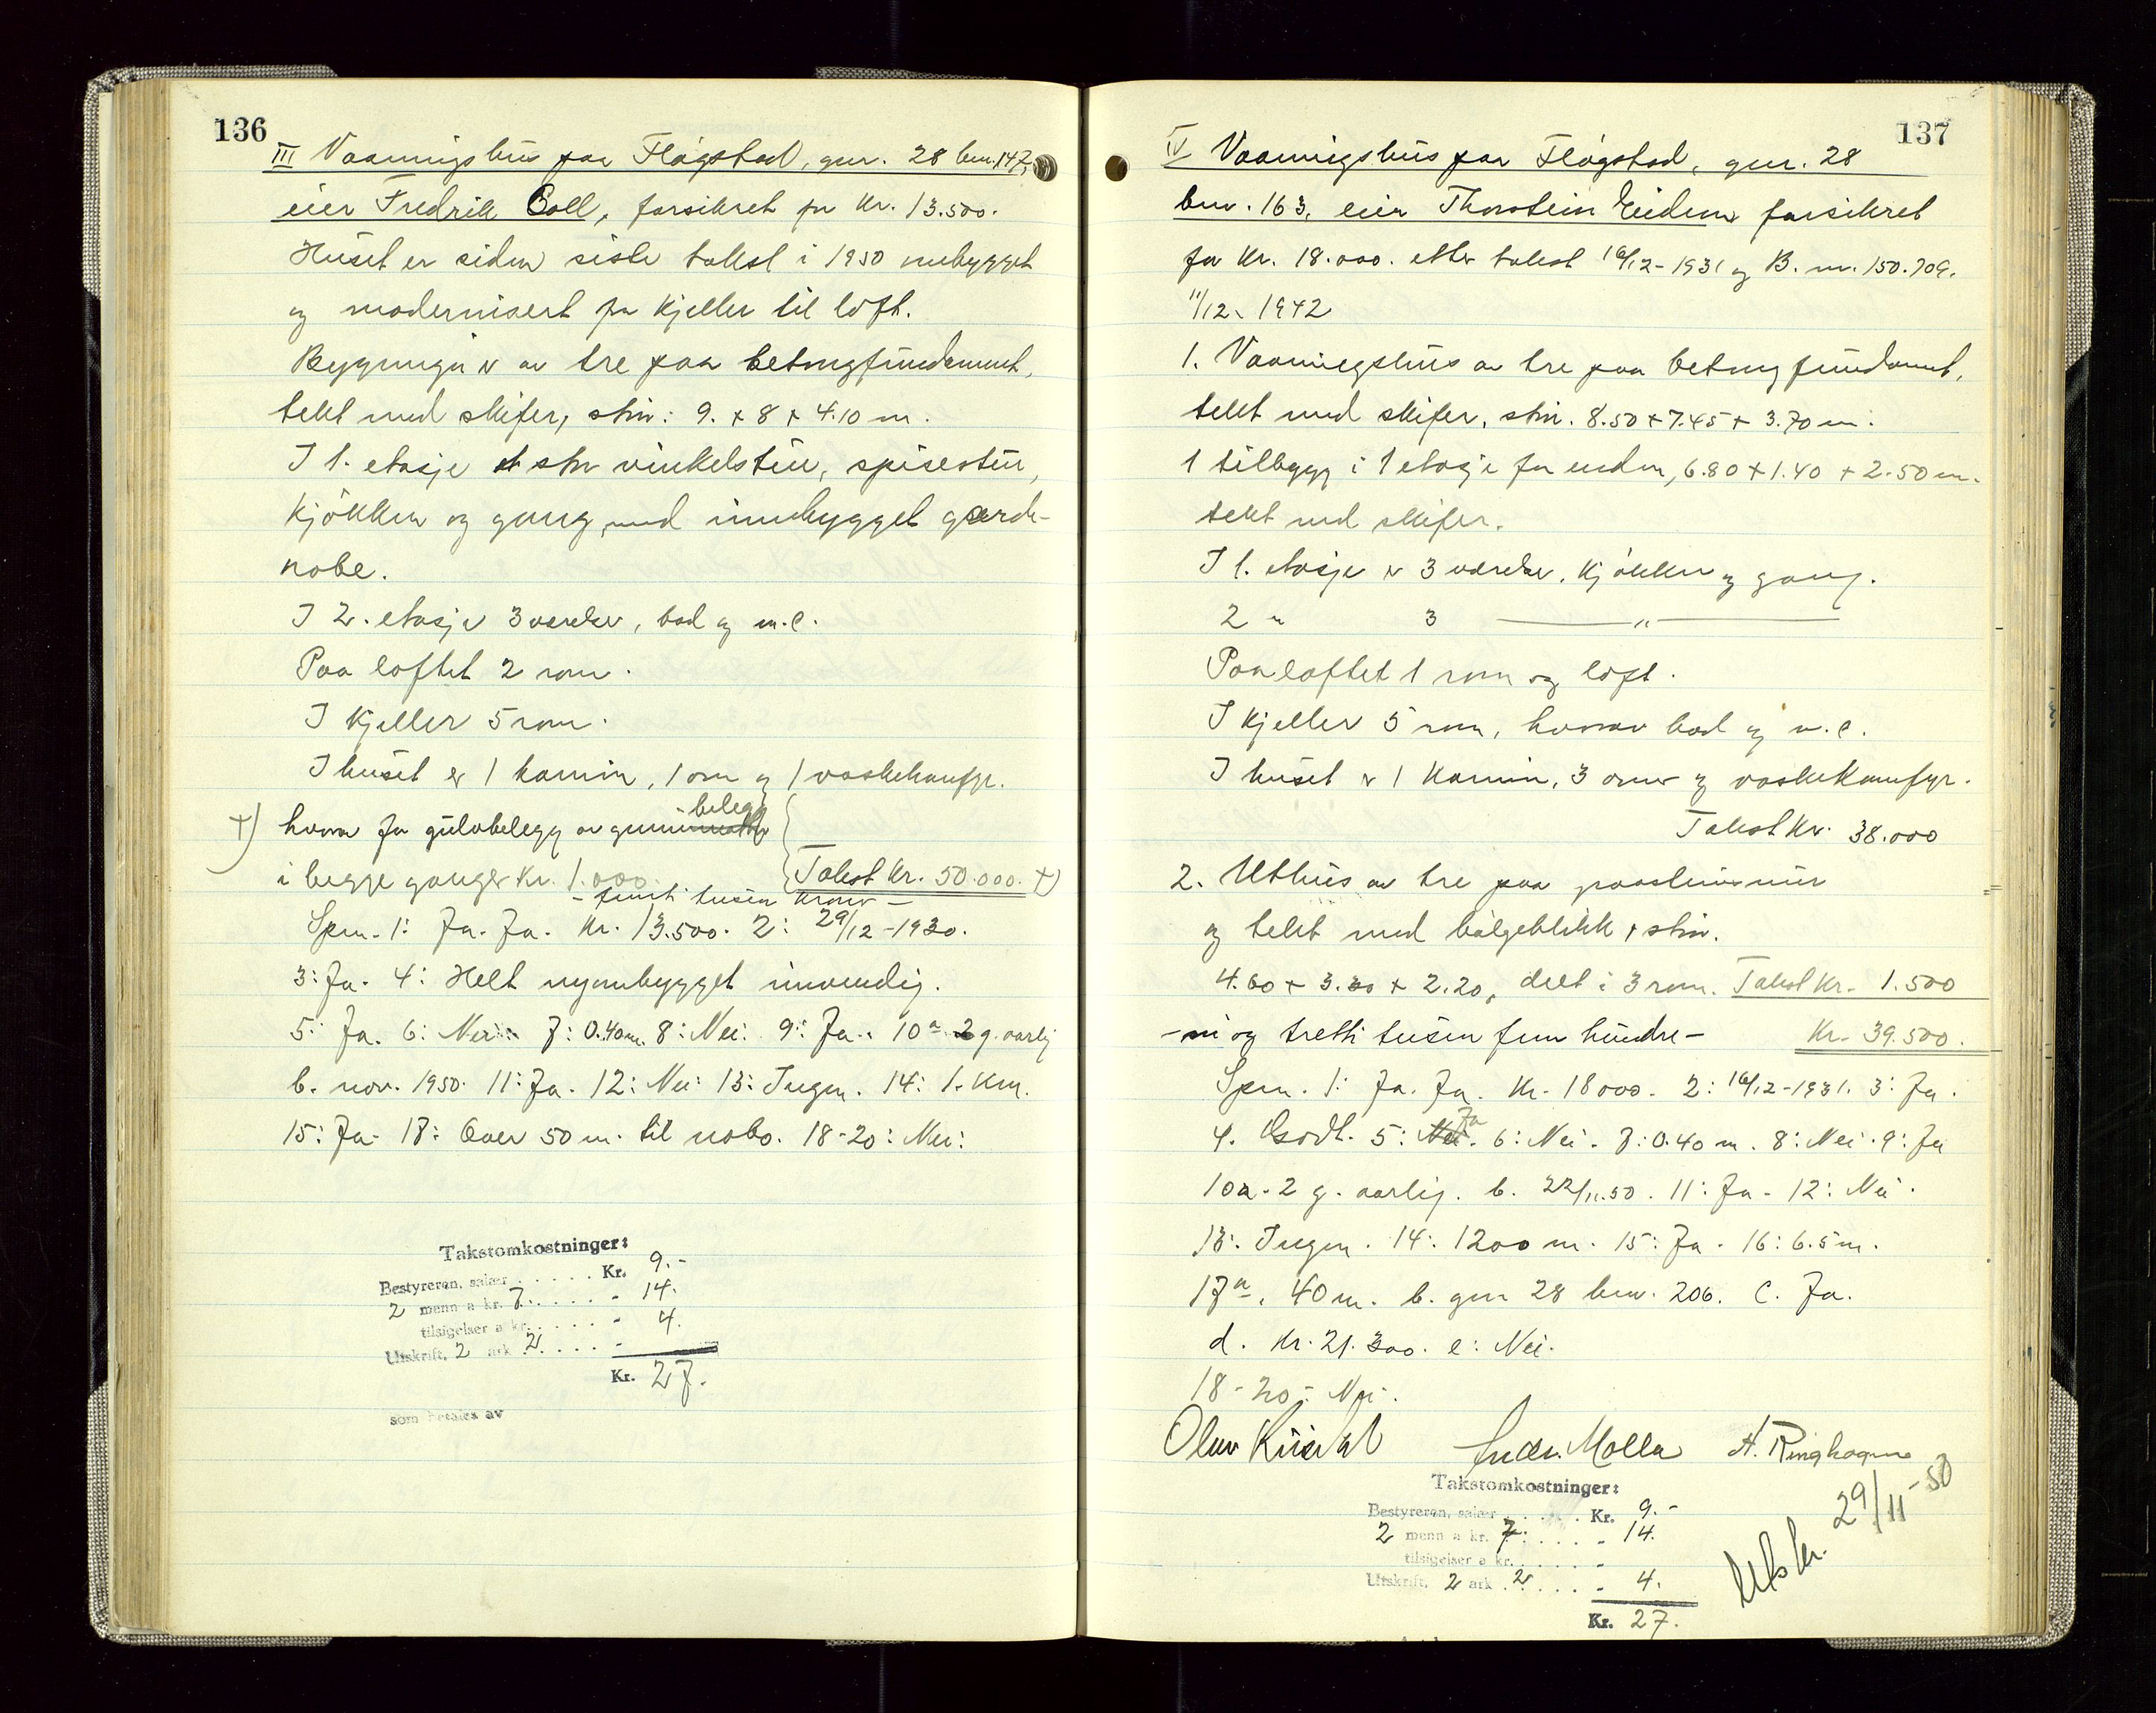 136
III Vaaningshus paa Flågstad, gnr. 28 bnr. 147,
eier Fredrik Coll, forsikret for Kr. 13.500.
Huset er siden siste takst i 1930 ombygget
og modernisert fra kjeller til loft.
Bygningen er av tre paa betongfundament,
tekt med skifer, stør: 9. + 8 + 4.10 m.
I 1. etasje stor vinkelstue, spisestue,
kjøkken og gang, med innebygget garde-
robe.
I 2. etasje 3 værelser, bad og w.c.
Paa loftet 2 rom.
I kjeller 5 rom.
I huset er 1 kamin, 1 ovn og 1 vaskekumfyr.
belegg
+) hvorav for gulvbelegg av gummi
i begge ganger Kr. 1.000.
Takst Kr. 50.000. +)
- femti tusen kroner -
Spm. 1: Ja. Ja. Kr. 13.500. 2: 29/12-1930.
3: Ja. 4: Helt nyombygget innvendig.
5: Ja. 6: Nei. 7: 0.40 m. 8: Nei. 9: Ja. 10a 2 g. aarlig
b. nov. 1950. 11: Ja. 12: Nei: 13: Ingen. 14: 1. km.
15: Ja. 17: Over 50 m. til nabo. 18-20: Nei:
Takstomkostninger:
Bestyreren, salær . . . . . Kr. 9.-
2 menn a kr. 7. . . . . - 14.
tilsigelser a kr. . . . . . - 4.
Utskrift, 2 ark 2 . . . . -
Kr. 27.
som betales av
137
IV Vaaningshus paa Flågstad, gnr. 28
bnr. 163, eier Thorstein Eidem forsikret
for Kr. 18.000. etter takst 16/12-1931 og B. nr. 150.709.
11/12. 1942
1. Vaaningshus av tre paa betongfundament,
tekt med skifer, stør. 8.50 + 7.45 + 3.70 m.
1 tilbygg i 1 etasje for enden, 6.80 + 1.40 + 2.50 m.
tekt med skifer.
I 1. etasje er 3 værelser, kjøkken og gang.
2 " 3 — " —
Paa loftet 1 rom og loft.
I kjeller 5 rom, hvorav bad og w.c.
I huset er 1 kamin, 3 ovner og vaskekumfyr.
Takst Kr. 38.000
2. Uthus av tre paa graasteinsmur
og tekt med bølgeblikk, stør.
4.60 + 3.30 + 2.20, delt i 3 rom. Takst Kr. 1.500
- ni og tretti tusen fem hundre - Kr. 39.500.
Spm. 1: Ja. Ja. Kr. 18000. 2: 16/12-1931. 3: Ja.
4. Godt. 5: Nei Ja. 6: Nei. 7: 0.40 m. 8: Nei. 9: Ja
10a. 2 g. aarlig. b. 22/11.50. 11: Ja. 12: Nei.
13: Ingen. 14: 1200 m. 15: Ja. 16: 6.5 m.
17a. 40 m. b. gnr 28 bnr. 206. c. Ja.
d. Kr. 21.300. e: Nei.
18-20: Nei.
Olav Andr. Molla A. Ringhagen
Utskr. 29/11-50
Takstomkostninger:
Bestyreren, salær . . . . . Kr. 9.-
2 menn a kr. 7. . . . . - 14.
tilsigelser a kr. . . . . . -
Utskrift, 2 ark 2 . . . . - 4.
Kr. 27.